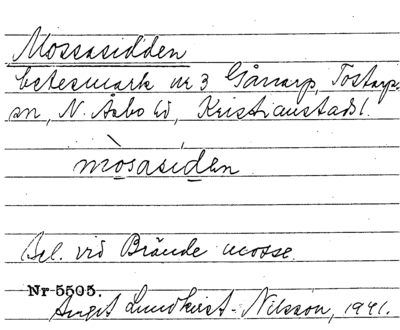 Mossasidden
betesmark nr 3 Gånarp, Tostarps
sn, N. Åsbo hd, Kristianstads l.
mòsasiden
Bel. vid Brände mosse.
Nr 5505.
Lundkvist-Nilsson, 1941.